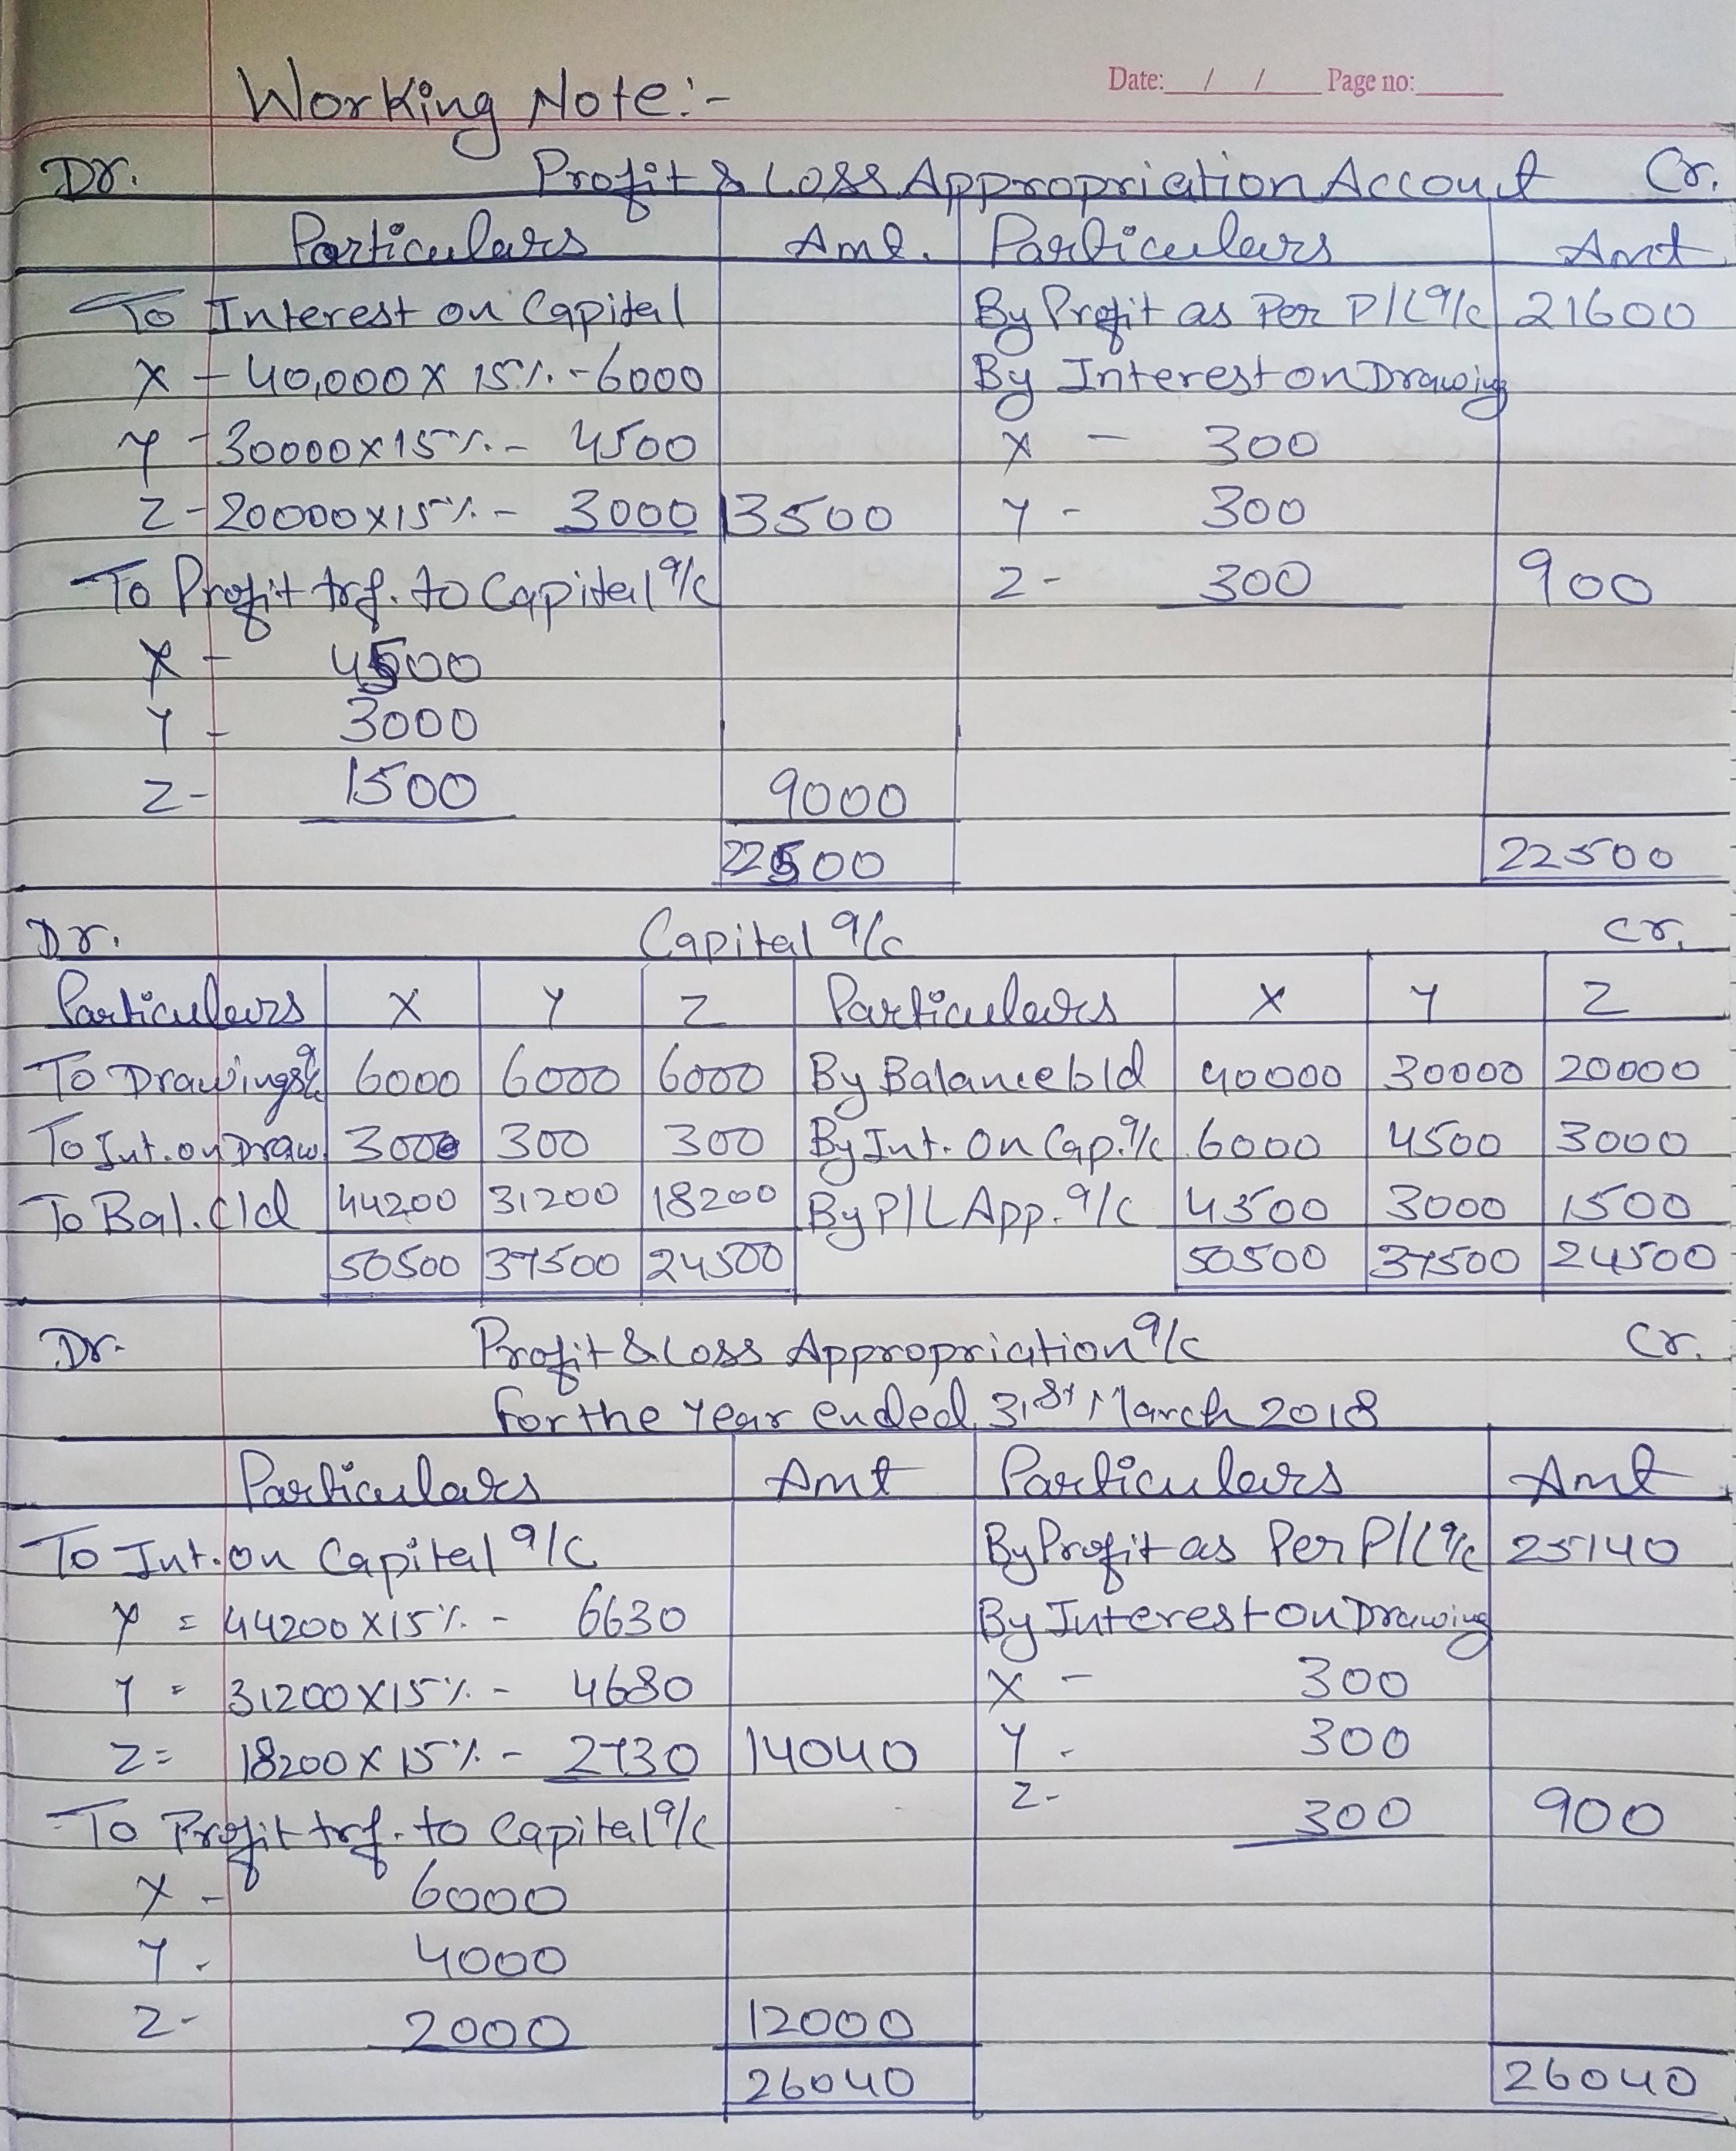 Date: / / Page no:
Working Note:-
Dr. Profit & Loss Appropriation Accout Cr.
Particulars Amt. Particulars Amt
To Interest on Capital By Profit as Per P/L a/c 21600
X - 40,000 X 15% - 6000 By Interest on Drawing
Y - 30000 x 15% - 4500 X - 300
Z - 20000 x 15% - 3000 13500 Y - 300
To Profit trf. to Capital a/c Z - 300 900
X - 4500
Y - 3000
Z - 1500 9000
22500 22500
Dr. Capital a/c Cr.
Particulars X Y Z Particulars X Y Z
To Drawings a/c 6000 6000 6000 By Balance b/d 40000 30000 20000
To Int. on Draw. 300 300 300 By Int. On Cap. a/c 6000 4500 3000
To Bal. c/d 44200 31200 18200 By P/L App. a/c 4500 3000 1500
50500 37500 24500 50500 37500 24500
Dr. Profit & Loss Appropriation a/c Cr.
for the Year ended 31st March 2018
Particulars Amt Particulars Amt
To Int. on Capital a/c By Profit as Per P/L a/c 25140
X = 44200 X 15% - 6630 By Interest on Drawing
Y = 31200 X 15% - 4680 X - 300
Z = 18200 X 15% - 2730 14040 Y - 300
To Profit trf. to Capital a/c Z - 300 900
X - 6000
Y - 4000
Z - 2000 12000
26040 26040